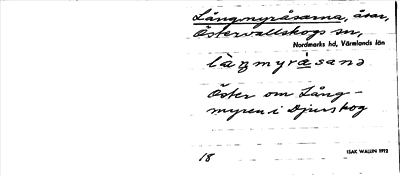 Långmyråsarna, åsar,
Östervallskogs sn,
Nordmarks hd, Värmlands län
Öster om Lång-
myren i Djurskog
18
ISAK WALLIN 1972